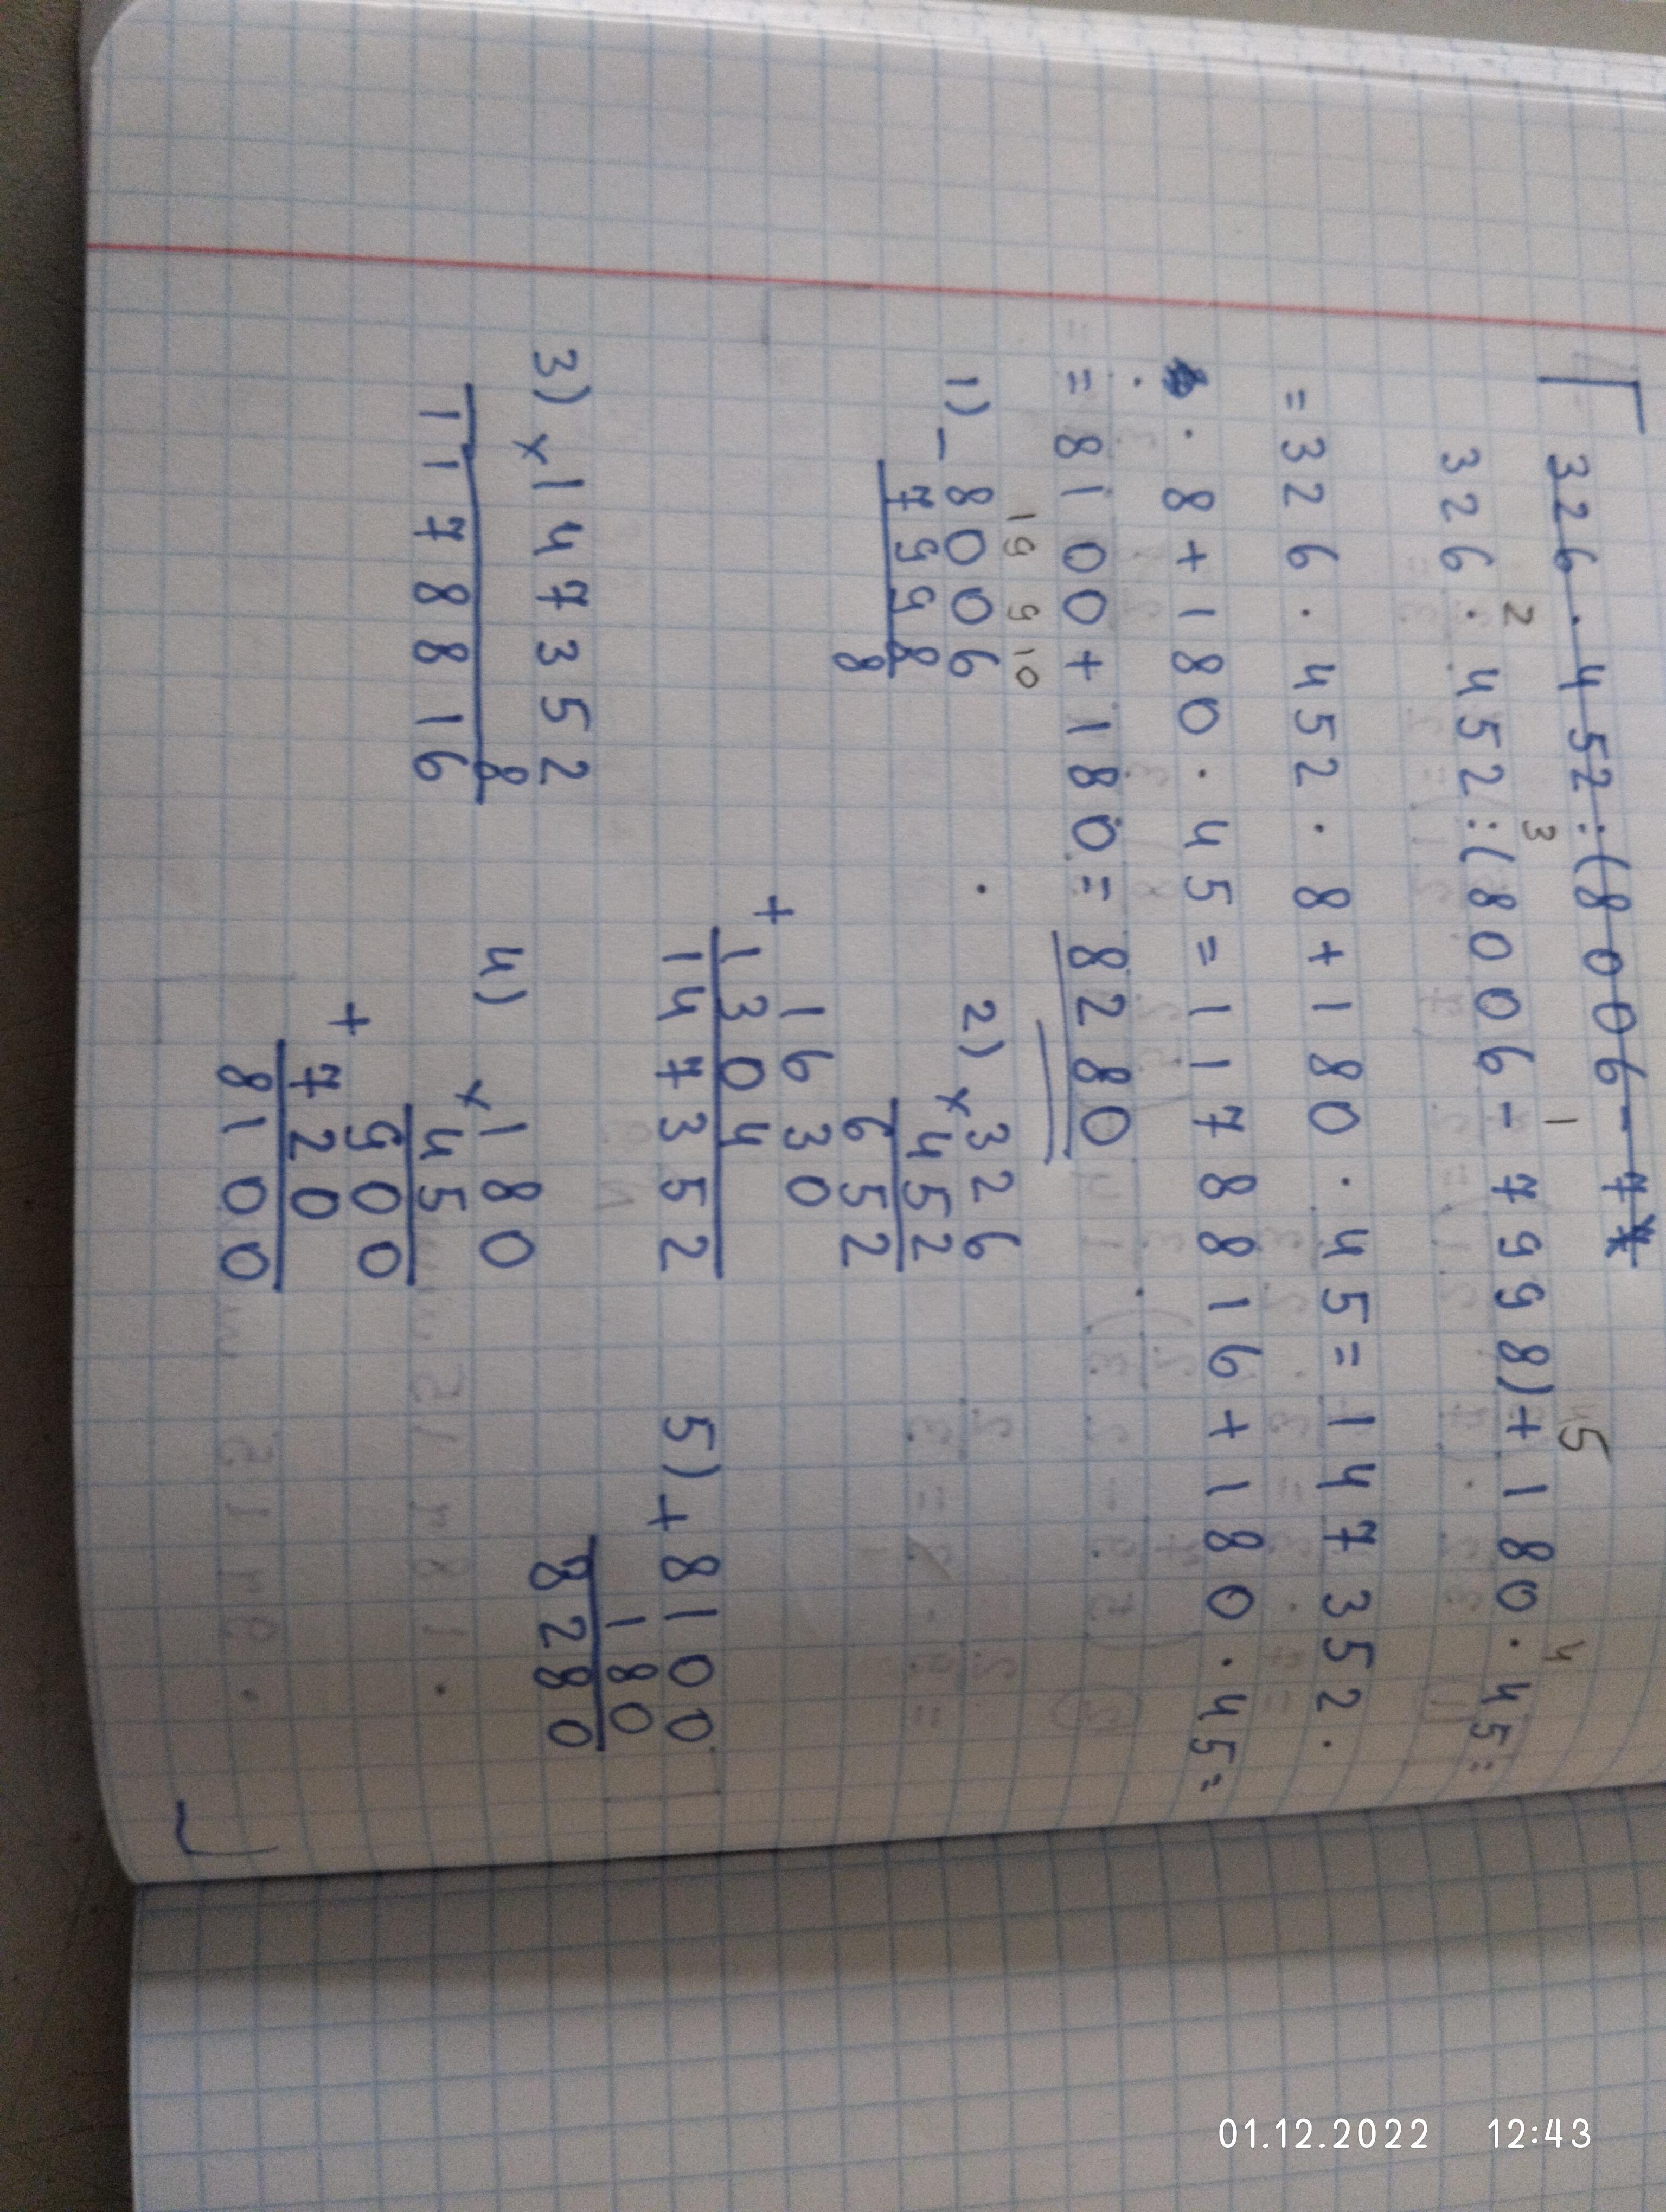 326 · 452 : (8006 - 7
2 3 1 5 4
326 · 452 : (8006 - 7998) + 180 · 45 =
= 326 · 452 · 8 + 180 · 45 = 147352 ·
· 8 + 180 · 45 = 1178816 + 180 · 45 =
= 8100 + 180 = 8280
19 9 10
1) - 8006
7998
8
2) x 326
452
652
1630
+ 1304
147352
3) x 147352
8
1178816
4) x 180
45
900
+ 720
8100
5) + 8100
180
8280
01.12.2022 12:43